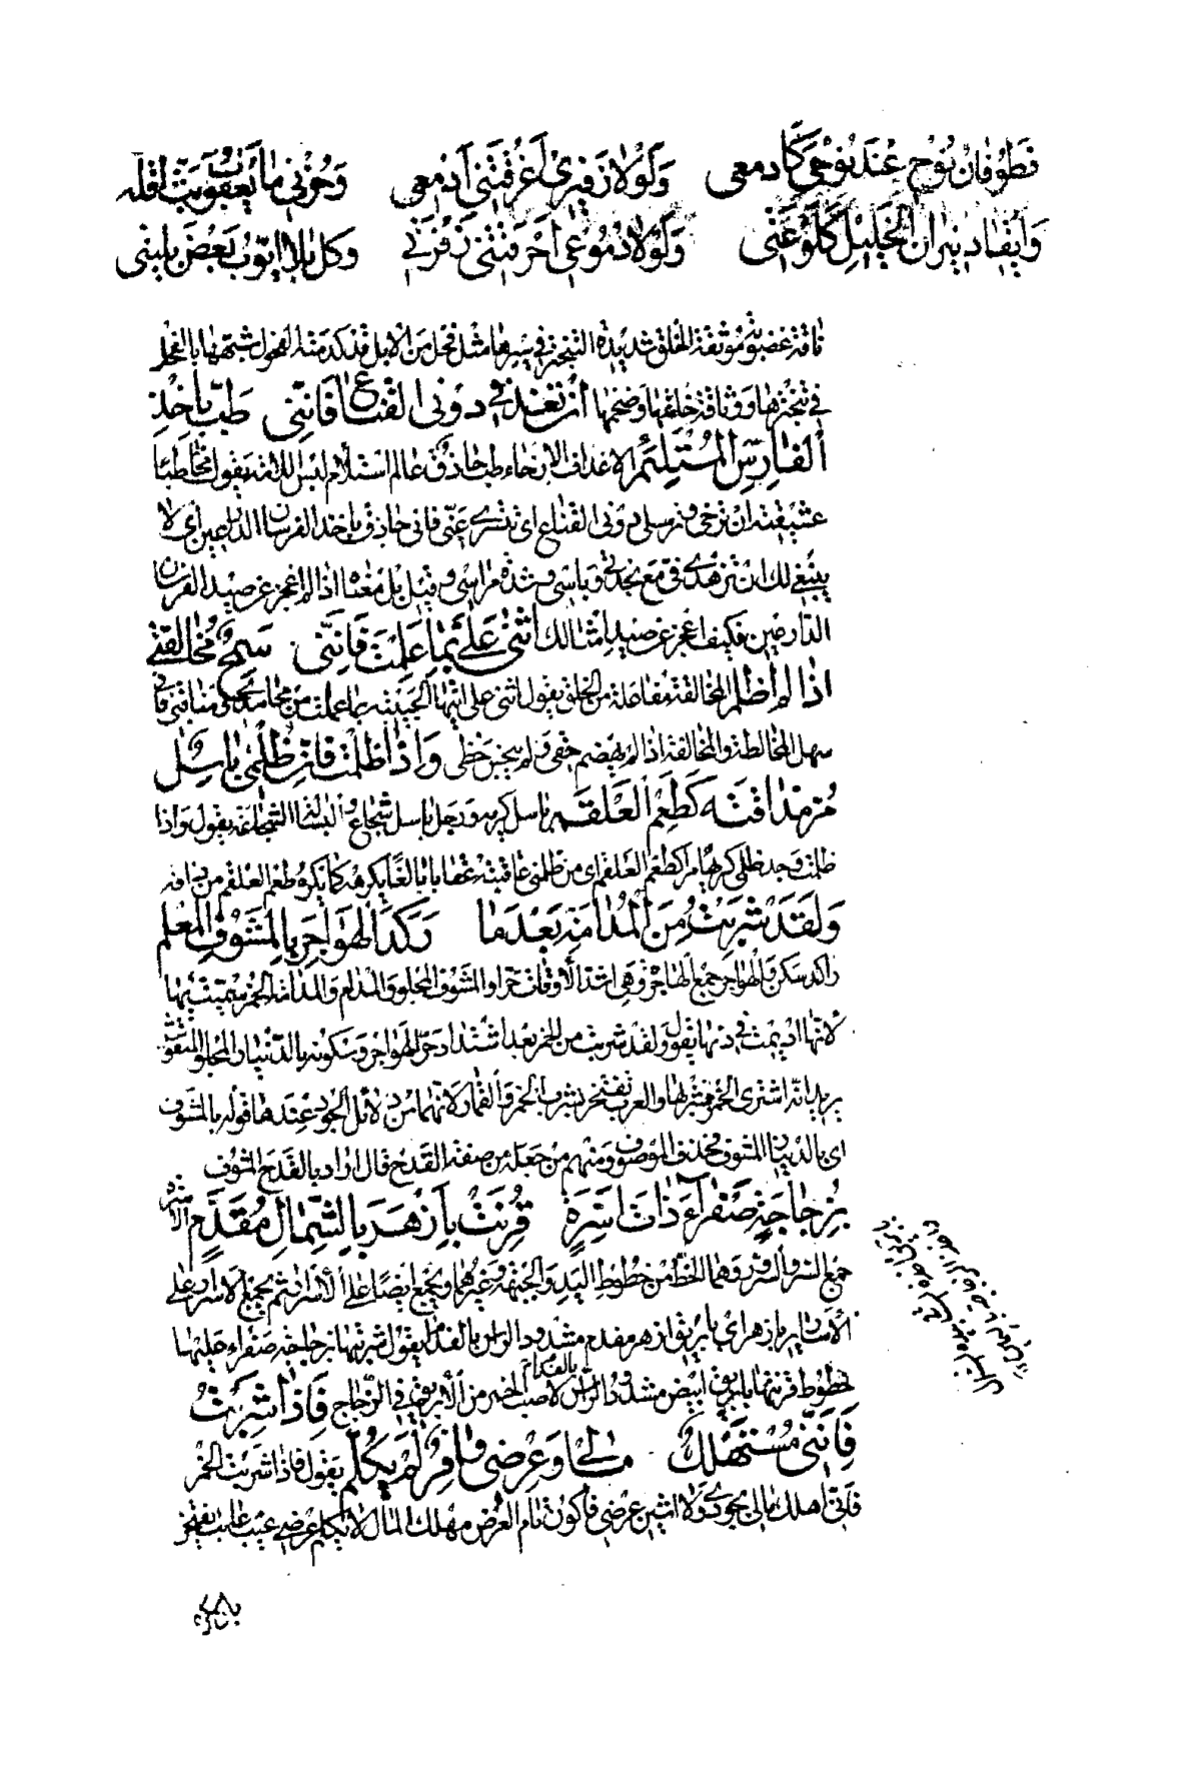 فَطُوفانُ نُوحٍ عِندَ نَوْحِي كَأَدمعي وَلَوْلا زَفيري أَغْرَقَتْنِي أَدْمُعي وَحُزْنِي ما يَعْقُوبُ بَثَّ أَقَلَّه
وَإِيقادُ نِيرانِ الخَلِيلِ كَلَوْعَتِي وَلَوْلا دُمُوعِي أَحْرَقَتْنِي زَفْرَتِي وَكُلُّ بَلا أَيُّوبَ بَعْضُ بَلِيَّتِي
ناقة غضوب موثقة الخلق شديدة التبختر في سيرها مثل فحل من الابل قد كدمته الفحول شبهها بالفحل
في تبخترها ووثاقة خلقها وضخمها اِنْ تُغْدِفي دُوني القِناعَ فَاِنَّنِي طَبٌّ بِاَخْذِ
الفارِسِ المُسْتَلْئِمِ الاغداف الارخاء طب حاذق عالم استلأم لبس اللأمة يقول مخاطبا
عشيقته ان ترخي وترسلي دوني القناع اي تتستري عني فاني حاذق باخذ الفرسان الدارعين اي لا
ينبغي لك ان تزهدي في مع نجدتي وباسي وشدة مراسي وقيل بل معناه اذا لم اعجز عن صيد الفرسان
الدارعين فكيف اعجز عن صيد امثالك اَثْنِي عَلَيَّ بِما عَلِمْتِ فَاِنَّنِي سَمْحٌ مُخالَقَتي
اِذا لَمْ اُظْلَمِ المخالقة مفاعلة من الخلق يقول اثني علي ايتها الحبيبة بما علمت من محامدي ومناقبي فاني
سهل المخالطة والمخالقة اذا لم يهضم حقي ولم يبخس حظي وَاِذا ظُلِمْتُ فَاِنَّ ظُلْمِي باسِلٌ
مُرٌّ مَذاقَتُهُ كَطَعْمِ العَلْقَمِ باسل كريه ورجل باسل شجاع والبسالة الشجاعة يقول واذا
ظلمت وجد ظلمي كريها مرا كطعم العلقم اي من ظلمني عاقبته عقابا بالغا يكرهه كما يكره طعم العلقم من ذاقه
وَلَقَدْ شَرِبْتُ مِنَ المُدامَةِ بَعْدَما رَكَدَ الهَواجِرُ بِالمَشُوفِ المُعْلَمِ
راكد سكن والهواجر جمع الهاجرة وهي اشد الاوقات حرا والمشوف المجلو والمدام والمدامة الخمر سميت بها
لانها اديمت في دنها يقول ولقد شربت من الخمر بعد اشتداد حر الهواجر وسكونه بالدينار المجلو المنقوش
يريد انه اشترى الخمر فشربها والعرب تفتخر بشرب الخمر والقمار لانهما من دلائل الجود عندها قوله بالمشوف
اي بالدينار المشوف فحذف الموصوف ومنهم من جعله من صفة القدح قال اراد بالقدح المشوف
بِزُجاجَةٍ صَفْراءَ ذاتِ اَسِرَّةٍ قُرِنَتْ بِاَزْهَرَ بِالشِّمالِ مُقَدَّمِ الاسرة
جمع السر والسرر وهما الخط من خطوط اليد والجبهة وغيرهما ويجمع ايضا على الاسرار ثم يجمع الاسرار على
الاسارير بازهر اي بابريق ازهر مفدم مشدود الراس بالفدام يقول شربتها بزجاجة صفراء عليها
خطوط قرنتها بابريق ابيض مشدود الراس بالفدام لاصب الخمر من الابريق في الزجاج فَاِذا شَرِبْتُ
فَاِنَّنِي مُسْتَهْلِكٌ مالِي وَعِرْضِي وافِرٌ لَمْ يُكْلَمِ يقول فاذا شربت الخمر
فاني اهلك مالي بجودي ولا اشين عرضي فاكون تام العرض مهلك المال لا يكلم عرضي عيب عايب يفتخر